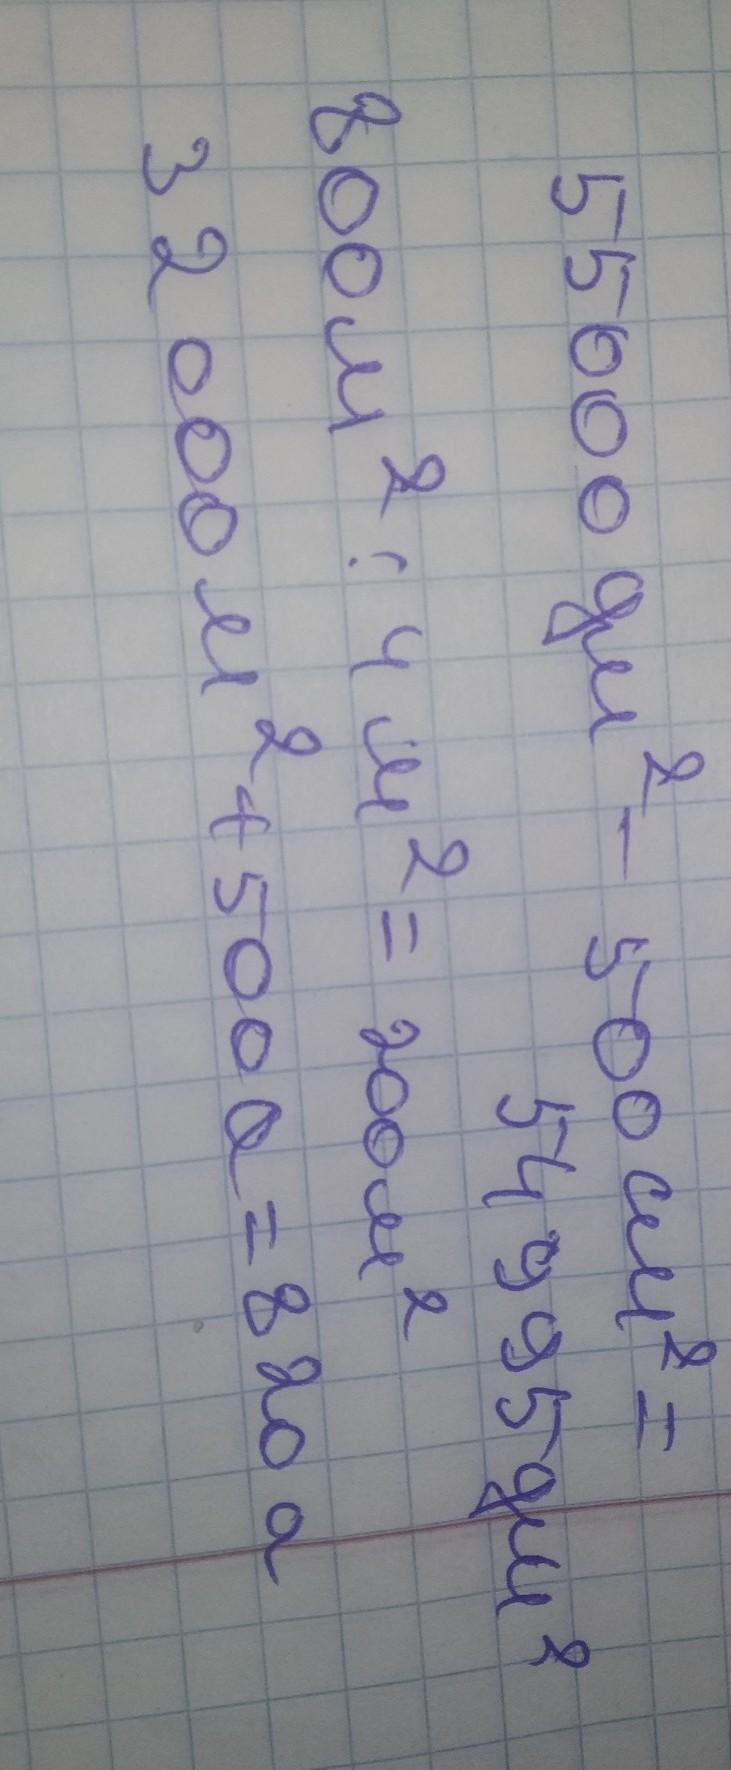 55000 дм² - 500 см² =
54995 дм²
800 м² : 4 м² = 200 м²
32000 м² + 500 а = 820 а